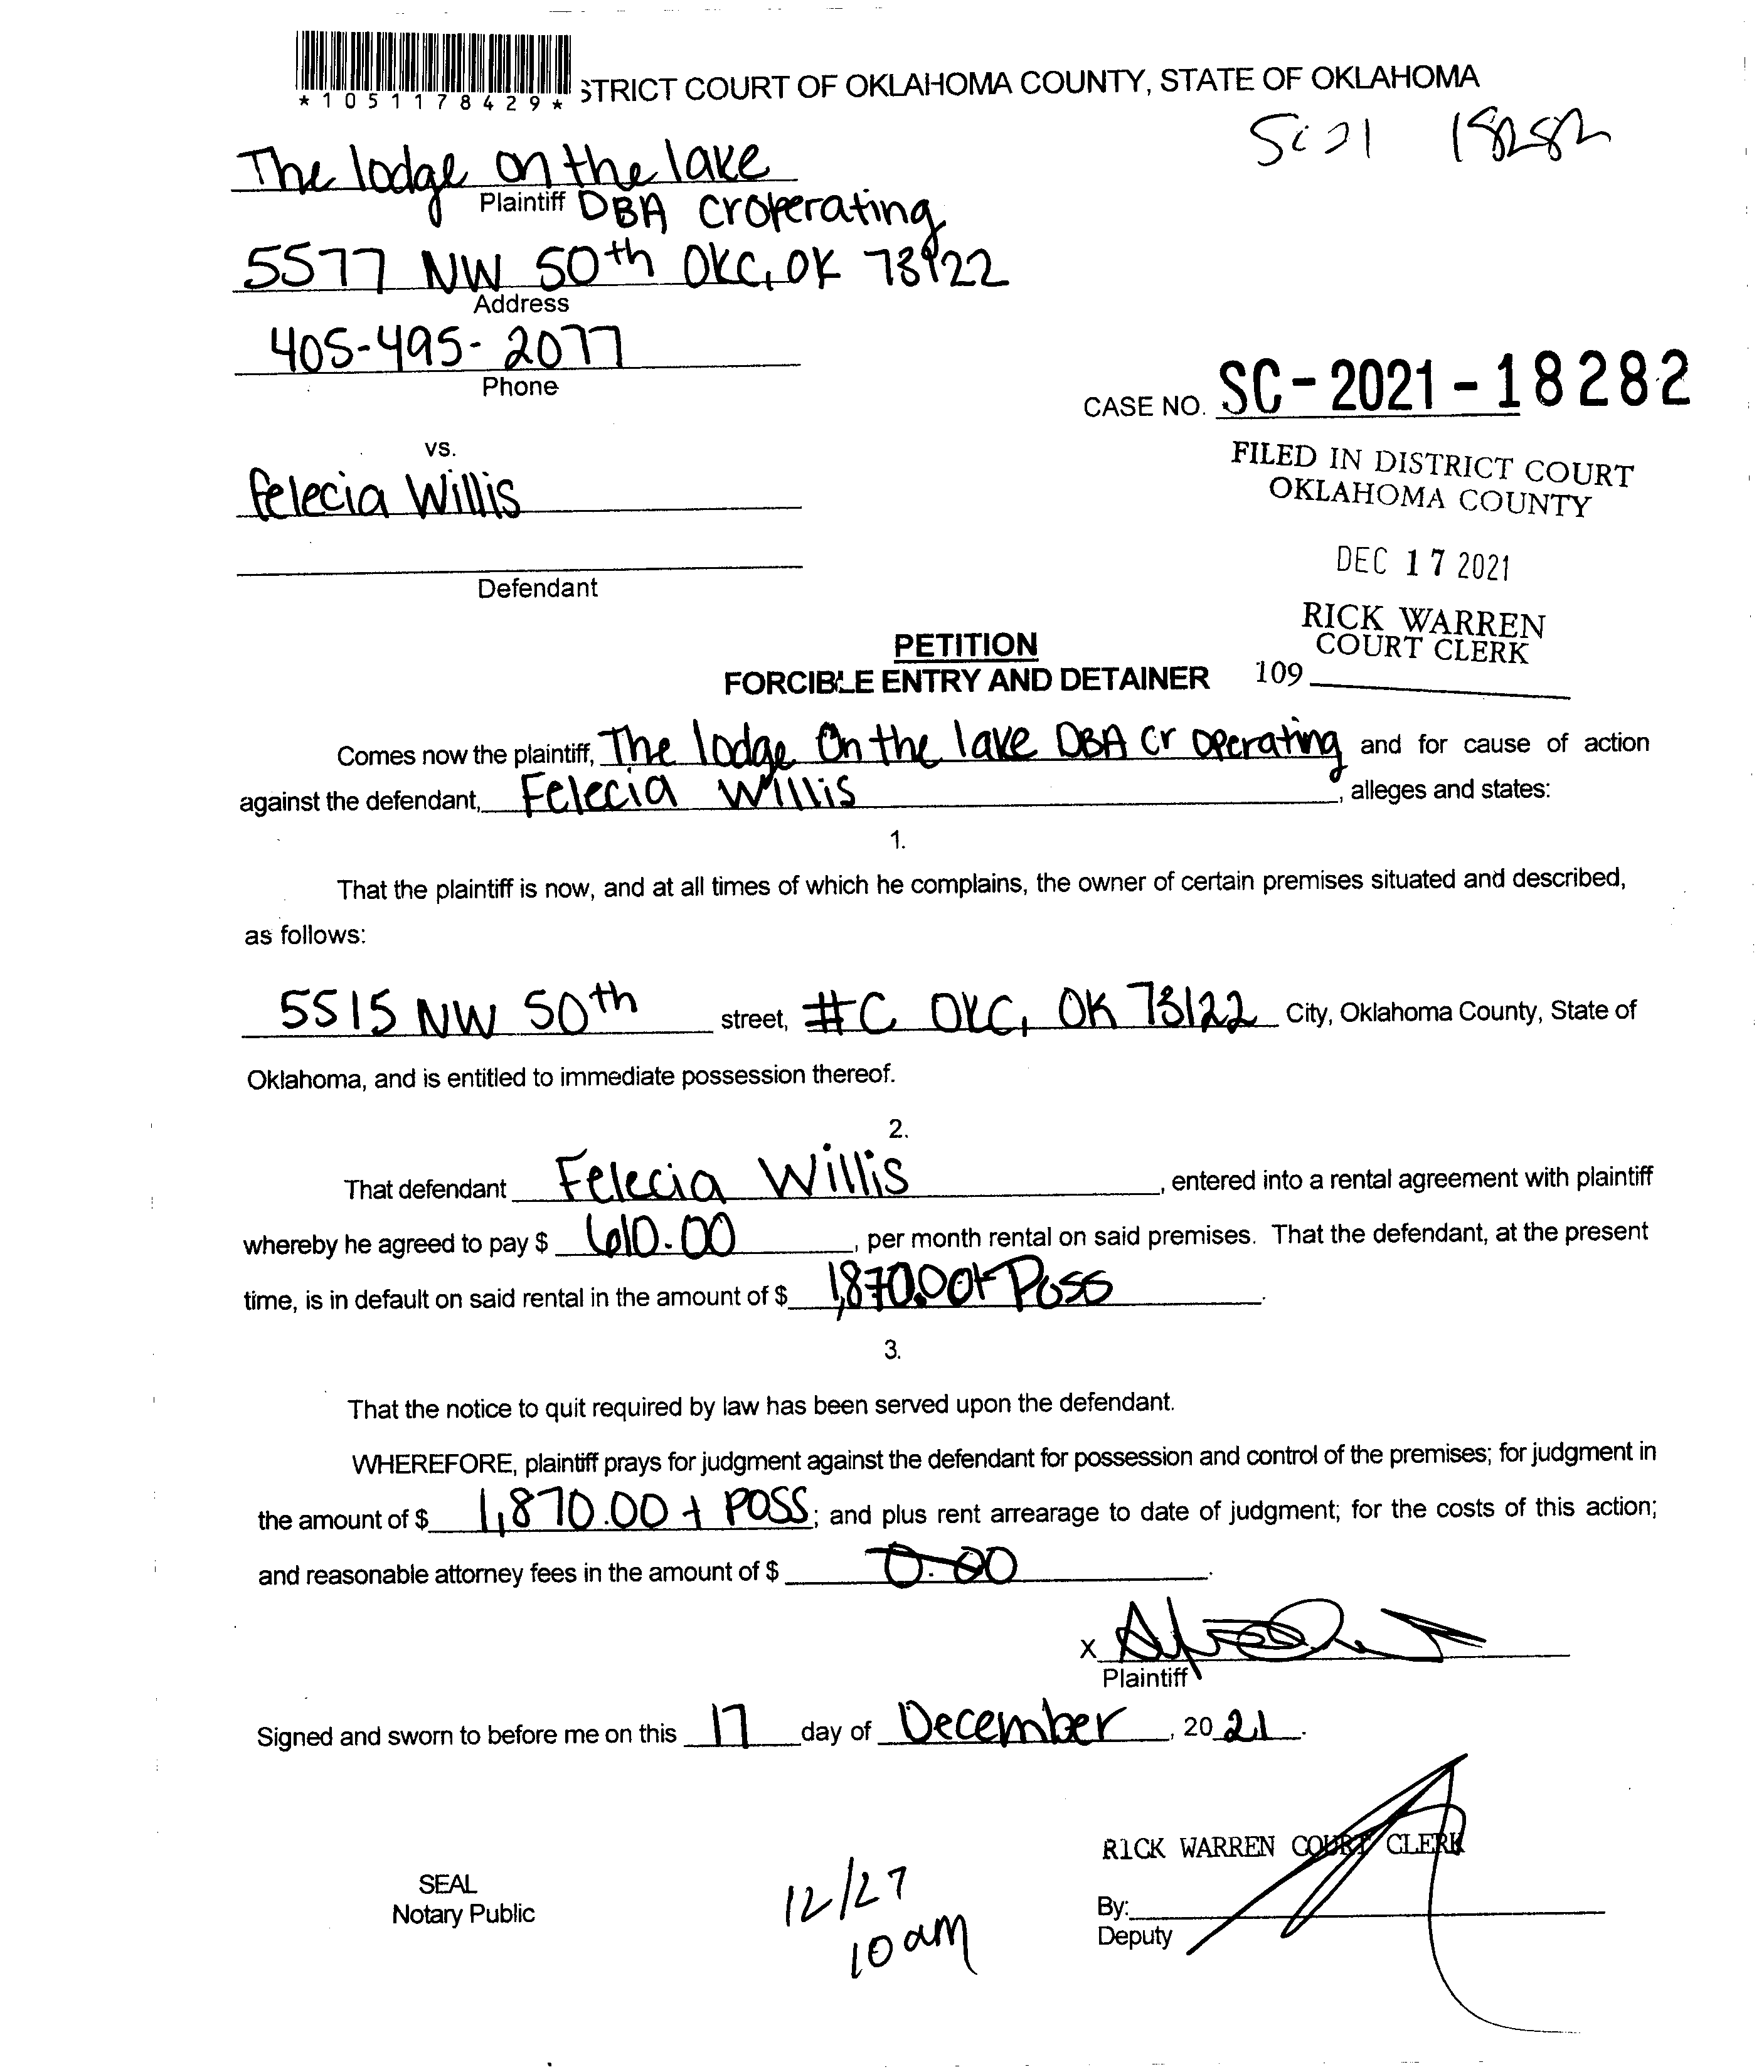 *1051178429*
STRICT COURT OF OKLAHOMA COUNTY, STATE OF OKLAHOMA
SC21 18282
The lodge on the lake
Plaintiff DBA Croperating
5577 NW 50th OKC, OK 73122
Address
405-495-2077
Phone
CASE NO. SC-2021-18282
vs.
Felecia Willis
Defendant
FILED IN DISTRICT COURT
OKLAHOMA COUNTY
DEC 17 2021
RICK WARREN
COURT CLERK
109
PETITION
FORCIBLE ENTRY AND DETAINER
Comes now the plaintiff, The lodge On the lake DBA Cr operating and for cause of action
against the defendant, Felecia Willis, alleges and states:
1.
That the plaintiff is now, and at all times of which he complains, the owner of certain premises situated and described,
as follows:
5515 NW 50th street, #C OKC, OK 73122 City, Oklahoma County, State of
Oklahoma, and is entitled to immediate possession thereof.
2.
That defendant Felecia Willis, entered into a rental agreement with plaintiff
whereby he agreed to pay $ 610.00, per month rental on said premises. That the defendant, at the present
time, is in default on said rental in the amount of $ 1,870.00+ Poss.
3.
That the notice to quit required by law has been served upon the defendant.
WHEREFORE, plaintiff prays for judgment against the defendant for possession and control of the premises; for judgment in
the amount of $ 1,870.00 + POSS; and plus rent arrearage to date of judgment; for the costs of this action;
and reasonable attorney fees in the amount of $ 0.00.
X
Plaintiff
Signed and sworn to before me on this 17 day of December, 2021.
RICK WARREN COURT CLERK
SEAL
Notary Public
12/27
10am
By:
Deputy